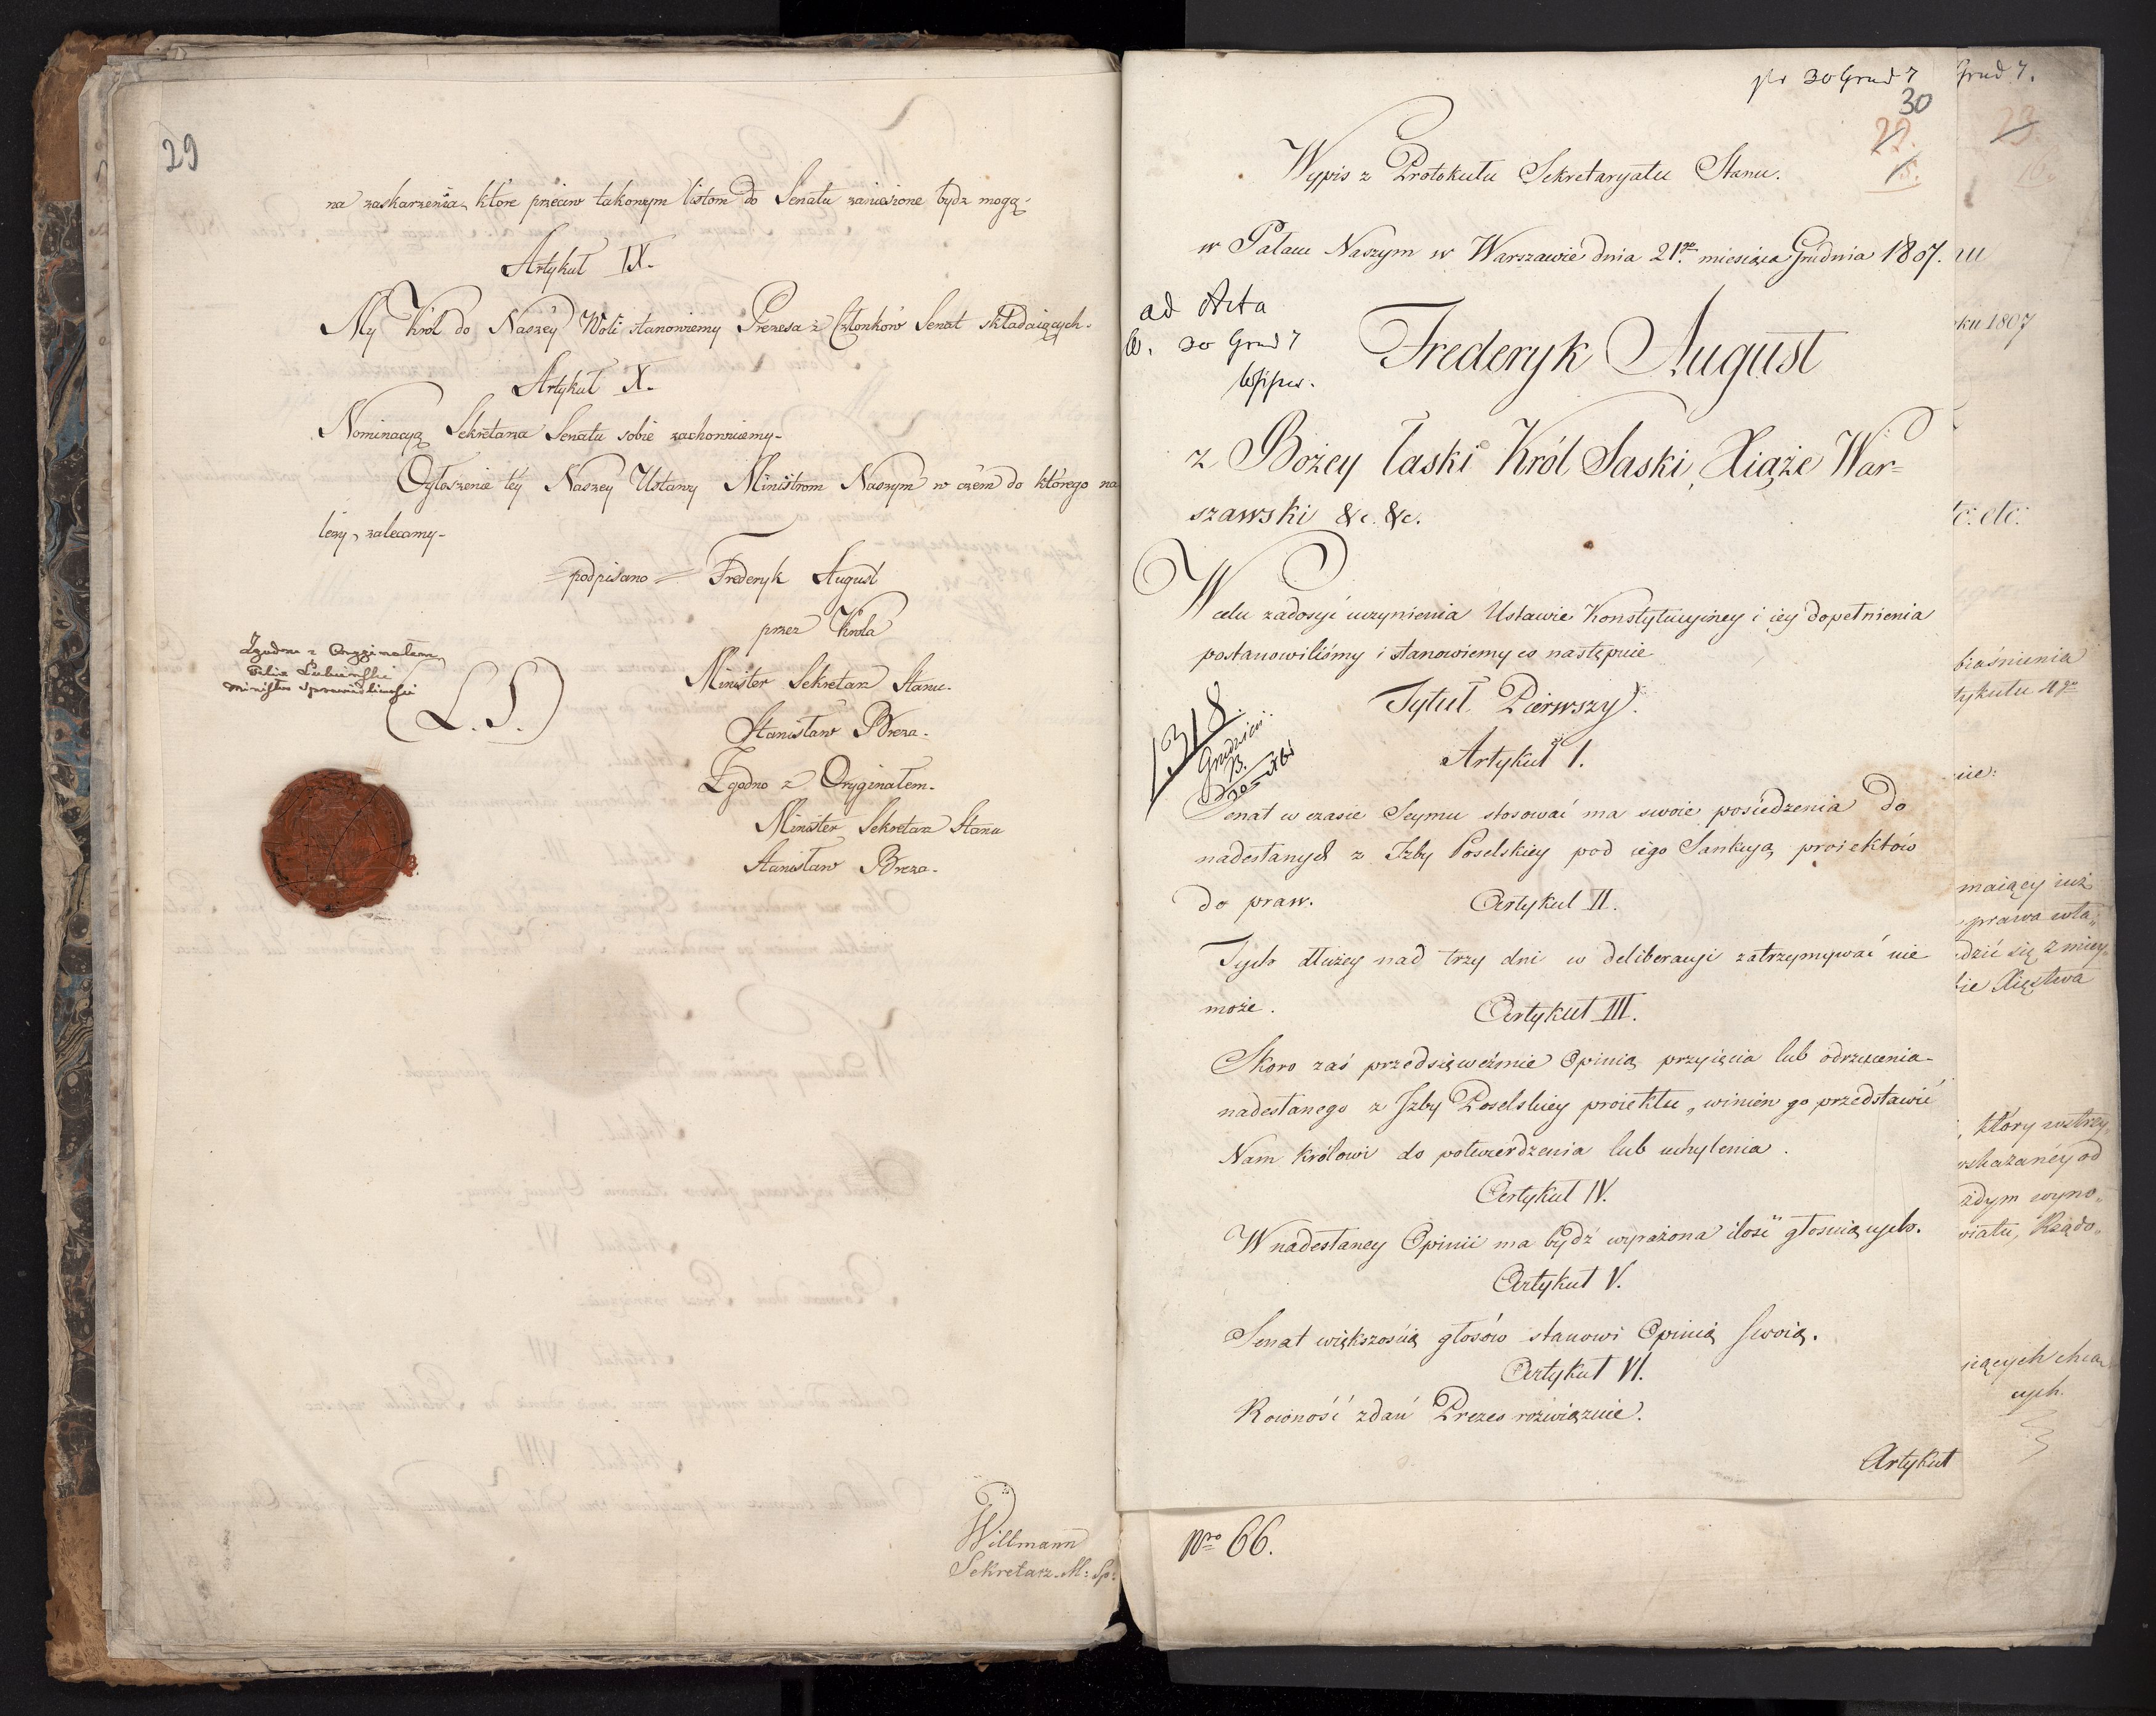 29
na zaskarzenia, które przeciw takowym listom do Senatu zaniesione bydz mogą.
Artykuł IX.
My Król do Naszéy Woli stanowiemy Prezesa z Członków Senat składaiących.
Artykuł X.
Nominacyą Sekretarza Senatu sobie zachowuiemy.
Ogłoszenie téy Naszey Ustawy Ministrom Naszym w czém do którego na
leży, zalecamy.
=podpisano= Frederyk August
przez Króla
Minister Sekretarz Stanu.
Stanisław Breza.
Zgodno z Oryginałem.
Minister Sekretarz Stanu
Stanisław Breza.
Zgodno z Oryginałem
Felix Lubieński
Minister Sprawiedliwości
(L.S.)
Willmann
Sekretarz. M: Sp:
pr 30 Grud 7
30
29.
15.
Wypis z Protokułu Sekretaryatu Stanu.
w Pałacu Naszym w Warszawie dnia 21go miesiąca Grudnia 1807.
ad Acta
30 Grud 7
Frederyk August
z Bożey Łaski Król Saski, Xiąże War=
szawski &c. &c.
W celu zadosyć uczynienia Ustawie Konstytucyiney i iey dopełnienia
postanowiliśmy i stanowiemy co następuie
Tytuł Pierwszy.
1318.
Artykuł 1.
Senat w czasie Seymu stosować ma swoie posiedzenia do
nadesłanych z Izby Poselskiey pod iego Sankcyą proiektów
do praw.
Artykuł II.
Tych dłużey nad trzy dni w deliberacyi zatrzymywać nie
może.
Artykuł III.
Skoro zaś przedsięweźmie Opinią przyięcia lub odrzucenia
nadesłanego z Izby Poselskiey proiektu, winien go przedstawić
Nam Królowi do potwierdzenia lub uchylenia.
Artykuł IV.
W nadesłaney Opinii ma bydź wyrażona ilość głosuiących.
Artykuł V.
Senat większością głosów stanowi Opinią swoią.
Artykuł VI.
Rowność zdań Prezes rozwiązuie.
Artykuł
Nro 66.
Grud 7.
29
16.
ku 1807
tc: etc:
biaśnienia
tykułu 4go
nie:
maiący iuż
prawa wła„
dzić się z miey„
ie Xięstwa
, który wstrzy„
wskazanéy od
żdym wyno„
wiatu, Rządo„
iących chcą
cych.